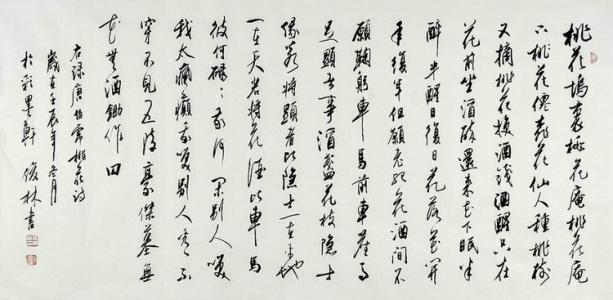 桃花塢裏桃花庵桃花庵
下桃花仙桃花仙人種桃樹
又摘桃花換酒錢酒醒只在
花前坐酒醉還來花下眠半
醉半醒日復日花落花開
年復年但願老死花酒間不
願鞠躬車馬前車塵馬
足顯者事酒盞花枝隱士
緣若將顯者比隱士一在平地
一在天若將花酒比車馬
彼何碌碌我何閑別人笑
我太瘋癲我笑別人看不
穿不見五陵豪傑墓無
花無酒鋤作田
右錄唐伯虎桃花詩
歲在壬辰年冬月
於彩墨軒 俊林書